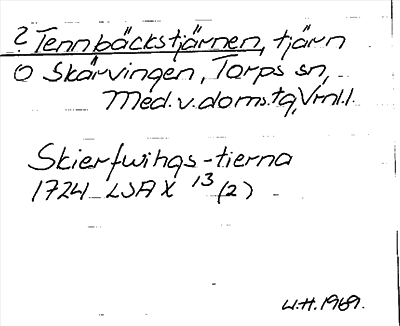 ? Tennbäckstjärnen, tjärn
O Skärvingen, Torps sn,
Med. v. doms. tg, Vrnl. l.
Skierfwings-tierna
1724 LSA X 13 (2)
W.H. 1969.